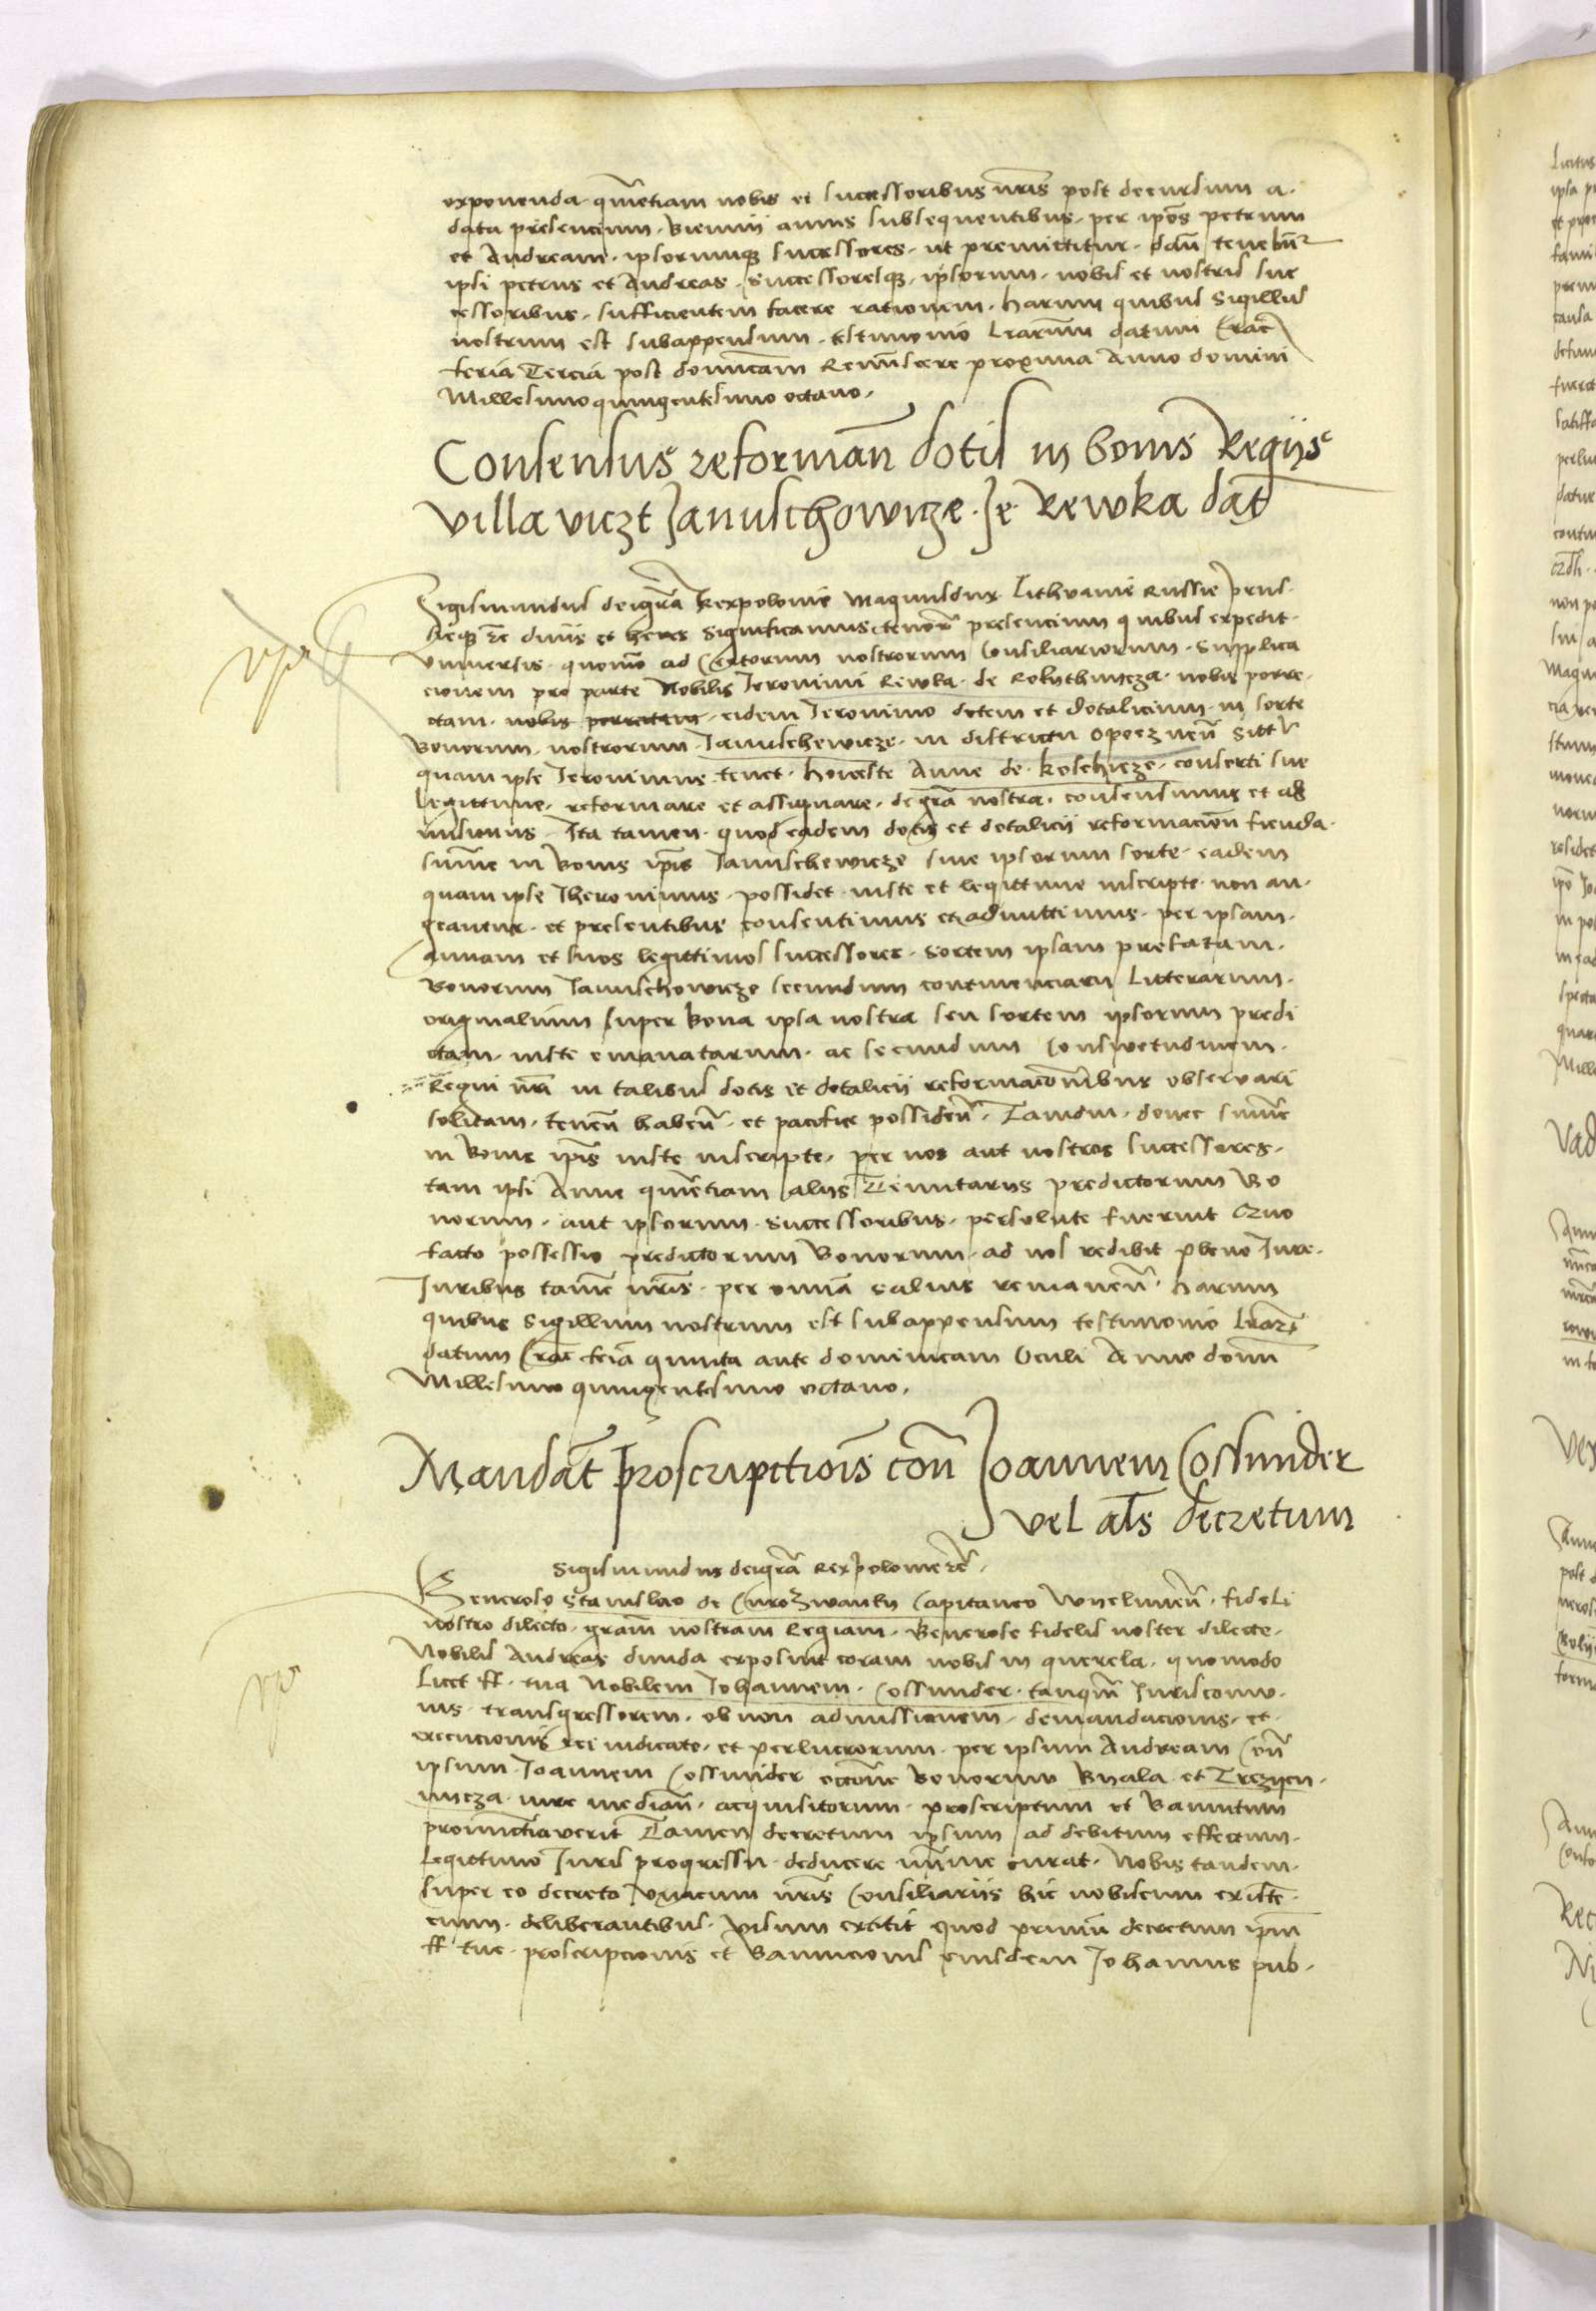 exponenda quiñetiam nobis et successoribus nr̃is post decursum a
data presencium Biennii annis subsequentibus per ip̃os petrum
et Andream ipsorumq; successores ut premittitur dañ tenebuñt
ipsi petrus et Andreas successoresq; ipsorum nobis et nostris suc
cessoribus sufficientem facere rationem harum quibus Sigillus
nostrum est subappensum testimonio Lr̃arum datum Crac̃
feria Tercia post dominicam Reminiscere proxima Anno domini
Millesimo quingentesimo octavo
Consensus reformañ dotis in bonis Regiis
villa viczt Januschowicze Je Rewka dat̃
Sigismundus dei gr̃a Rex polonie Magnusdux Lithvanie Russie Prus
sieq; zc̃ dn̄s et heres Significamus tenore presencium quibus expedit
vniversis quomo ad Certorum nostrorum Consiliariorum Supplica
cionem pro parte Nobilis Jeronimi Rewka de nobis porre
ctam nobis porrectam eidem Jeronimo dotem et dotalicium in sorte
Bonorum nostrorum Januschewicze in districtu opocznen̄ Sitt̃
quam ipse Jeronimus tenet honeste Anne de Koschicze consorti sue
legittime reformare et assignare de gr̃a nostra consensimus et ad
misimus Ita tamen quod eadem dotis et dotalicii reformacion̄ fienda
summe in Bonis ip̃is Januschewicze sive ipsorum sorte eadem
quam ipse Iheronimus possidet iuste et legittime inscripte non au
geantur et presentibus consentimus et admittimus per ipsam
annam et suos legittimos successores sortem ipsam prefatam
Bonorum Januschowicze secundum continenciam Litterarum
originalium super Bona ipsa nostra seu sortem ipsorum predi
ctam iuste emanatarum ac secundum Consuetudinem
Regni nr̃i in talibus dotis et dotalicii reformacionibus observari
solitam tenen̄ haben̄ et pacifice possiden̄ Tamdiu donec summe
in Bonis ip̃is iuste inscripte per nos aut nostros successores
tam ipsi Anne quiñetiam aliis Tenutariis predictorum Bo
norum aut ipsorum successoribus persolute fuerint Quo
facto possessio predictorum Bonorum ad nos redibit pleno Jure
Juribus tamē nr̃is per omnia salvis remanen̄ harum
quibus Sigillum nostrum est subappensum testimonio Lr̃arz
datum Crac̃ feria quinta ante dominicam Oculi Anno domī
Millesimo quingentesimo octavo
Mandat̃ proscripctiois con̄ Joannem Cossinider
vel als̃ decretum
Sigismundus dei gr̃a Rex polonie zc̃
Generoso Stanislao de Curozwanky Capitaneo Wyelunen̄ fideli
nostro dilecto gr̃am nostram Regiam Generose fidelis noster dilecte
Nobilis Andreas dunda exposuit coram nobis in querela quomodo
licet ff tua Nobilem Johannem Cossinder tanqm̄ Juriscomu
nis transgressorem ob non admissionem demandacionis et
execucionis rei iudicate et perlucrorum per ipsum Andream Con̄
ipsum Joannem Cossinider Bonorum Byala et Trezyen
nicza iure median̄ acquisitorum proscriptum et Bannitum
pronunctiaverit Tamen decretum ipsum ad debitum effectum
legittimo Juris progressu deducere minime curat Nobis tandem
super eo decreto vnacum nr̃is Consiliariis hic nobiscum existē
cium deliberantibus visum extitit quod primum decretum ip̃m
ff tue proscripcionis et Bannicionis eiusdem Johannis pub